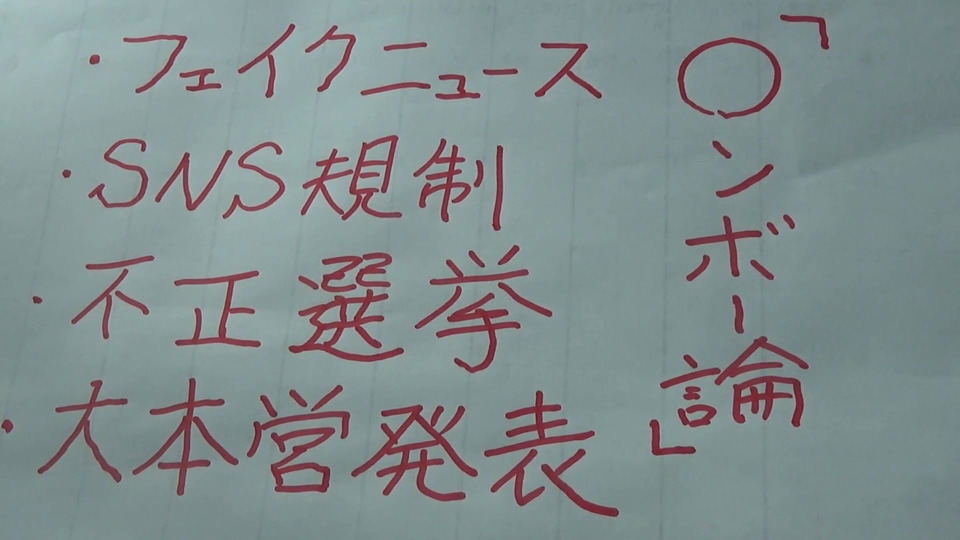 「〇ンボー論」
・フェイクニュース
・SNS規制
・不正選挙
・大本営発表